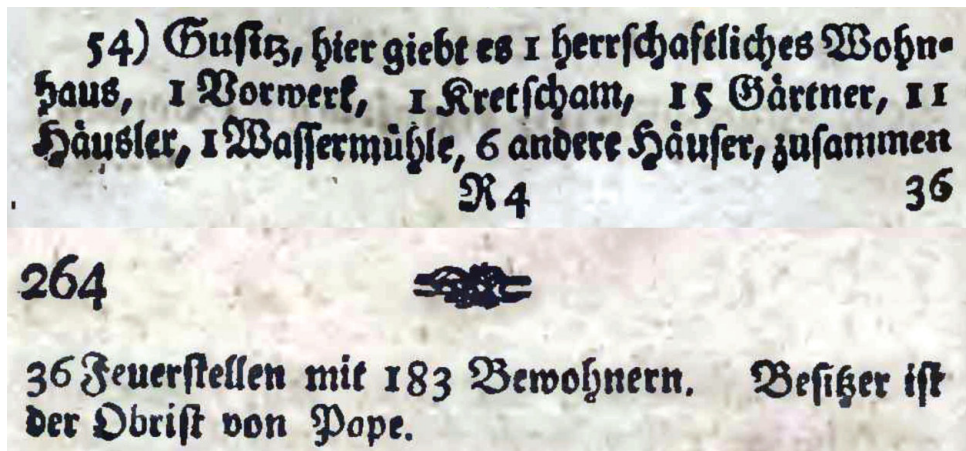 54) Gusitz, hier giebt es 1 herrschaftliches Wohn-
haus, 1 Vorwerk, 1 Kretscham, 15 Gärtner, 11
Häusler, 1 Wassermühle, 6 andere Häuser, zusammen
R 4 36
264
36 Feuerstellen mit 183 Bewohnern. Besitzer ist
der Obrist von Pape.